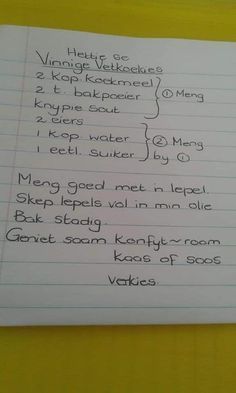 Hettie se
Vinnige Vetkoekies
2 Kop. Koekmeel
2 t. bakpoeier
Knypie sout
① Meng
2 eiers
1 kop water
1 eetl. suiker
② Meng
by ①
Meng goed met 'n lepel.
Skep lepels vol in min olie
Bak stadig.
Geniet saam Konfyt~room
kaas of sous
Verkies.